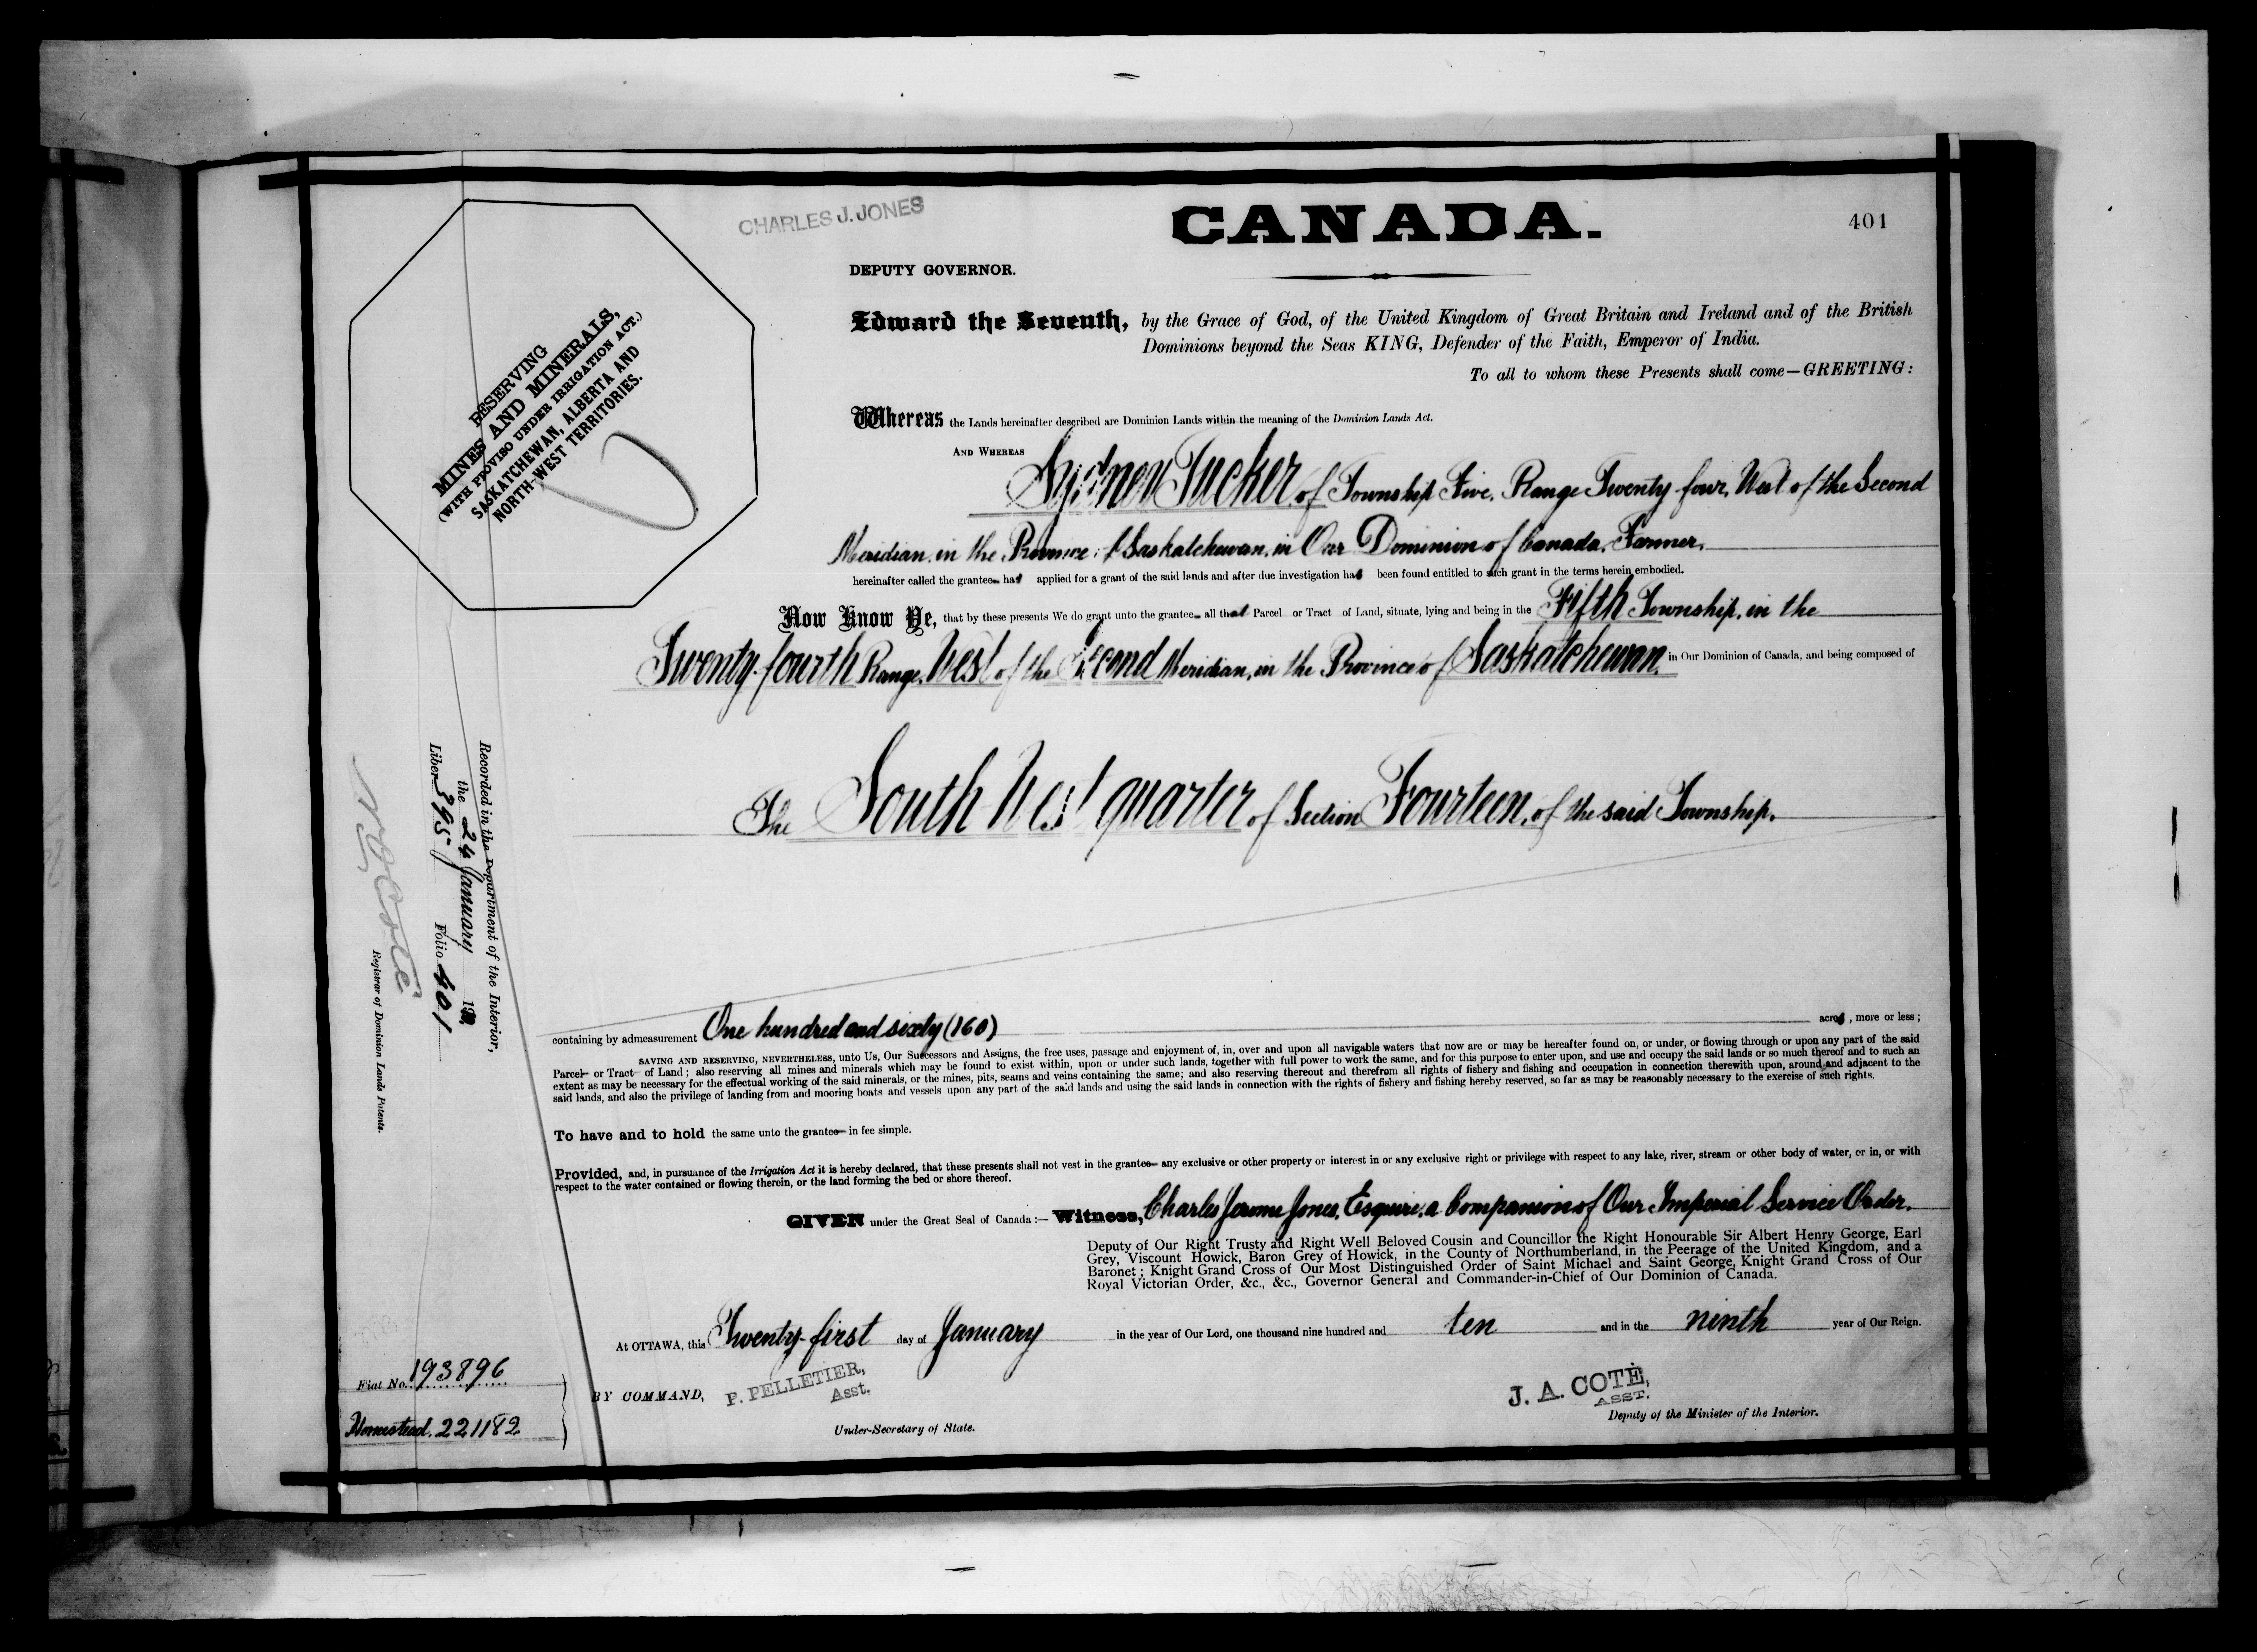 CHARLES J. JONES
CANADA.
401
DEPUTY GOVERNOR.
RESERVING
MINES AND MINERALS,
(WITH PROVISO UNDER IRRIGATION ACT.)
SASKATCHEWAN, ALBERTA AND
NORTH-WEST TERRITORIES.
Edward the Seventh, by the Grace of God, of the United Kingdom of Great Britain and Ireland and of the British
Dominions beyond the Seas KING, Defender of the Faith, Emperor of India.
To all to whom these Presents shall come—GREETING:
Whereas the Lands hereinafter described are Dominion Lands within the meaning of the Dominion Lands Act.
AND WHEREAS
Sydney Tucker, of Township Five, Range Twenty four, West of the Second
Meridian, in the Province of Saskatchewan, in Our Dominion of Canada, Farmer,
hereinafter called the grantee has applied for a grant of the said lands and after due investigation has been found entitled to such grant in the terms herein embodied.
Now Know Ye, that by these presents We do grant unto the grantee all that Parcel or Tract of Land, situate, lying and being in the Fifth Township, in the
Twenty-fourth Range, West of the Second Meridian, in the Province of Saskatchewan, in Our Dominion of Canada, and being composed of
The South West quarter of Section Fourteen, of the said Township.
Recorded in the Department of the Interior,
the 24 January
Liber 395 Folio 401
Registrar of Dominion Lands Patents.
containing by admeasurement One hundred and sixty (160) acres, more or less;
SAVING AND RESERVING, NEVERTHELESS, unto Us, Our Successors and Assigns, the free uses, passage and enjoyment of, in, over and upon all navigable waters that now are or may be hereafter found on, or under, or flowing through or upon any part of the said
Parcel or Tract of Land; also reserving all mines and minerals which may be found to exist within, upon or under such lands, together with full power to work the same, and for this purpose to enter upon, and use and occupy the said lands or so much thereof and to such an
extent as may be necessary for the effectual working of the said minerals, or the mines, pits, seams and veins containing the same; and also reserving thereout and therefrom all rights of fishery and fishing and occupation in connection therewith upon, around and adjacent to the
said lands, and also the privilege of landing from and mooring boats and vessels upon any part of the said lands and using the said lands in connection with the rights of fishery and fishing hereby reserved, so far as may be reasonably necessary to the exercise of such rights.
To have and to hold the same unto the grantee in fee simple.
Provided, and, in pursuance of the Irrigation Act it is hereby declared, that these presents shall not vest in the grantee any exclusive or other property or interest in or any exclusive right or privilege with respect to any lake, river, stream or other body of water, or in, or with
respect to the water contained or flowing therein, or the land forming the bed or shore thereof.
GIVEN under the Great Seal of Canada:— Witness, Charles Jerome Jones, Esquire, a Companion of Our Imperial Service Order,
Deputy of Our Right Trusty and Right Well Beloved Cousin and Councillor the Right Honourable Sir Albert Henry George, Earl
Grey, Viscount Howick, Baron Grey of Howick, in the County of Northumberland, in the Peerage of the United Kingdom, and a
Baronet; Knight Grand Cross of Our Most Distinguished Order of Saint Michael and Saint George, Knight Grand Cross of Our
Royal Victorian Order, &c., &c., Governor General and Commander-in-Chief of Our Dominion of Canada.
At OTTAWA, this Twenty-first day of January in the year of Our Lord, one thousand nine hundred and ten and in the ninth year of Our Reign.
Fiat No. 193896
Homestead. 221182
BY COMMAND, P. PELLETIER,
Asst.
Under-Secretary of State.
J. A. COTÉ,
ASST.
Deputy of the Minister of the Interior.